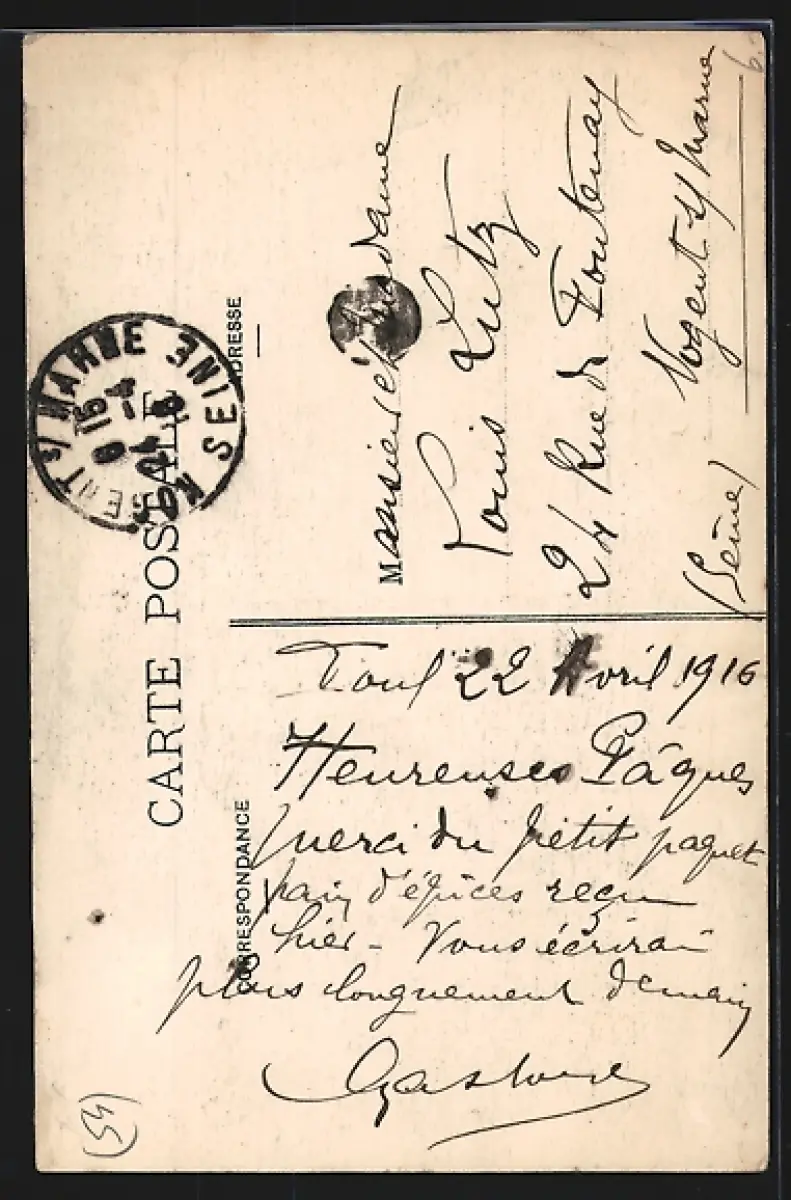 CARTE POSTALE
CORRESPONDANCE
ADRESSE
Toul 22 Avril 1916
Heureuses Pâques
merci du petit paquet
pain d'épices reçu
hier - Vous écrirai
plus longuement demain
Monsieur et Madame
Louis Lutz
24 Rue de Fontenay
Nogent s/ Marne
(Seine)
NOGENT S/ MARNE SEINE
(54)